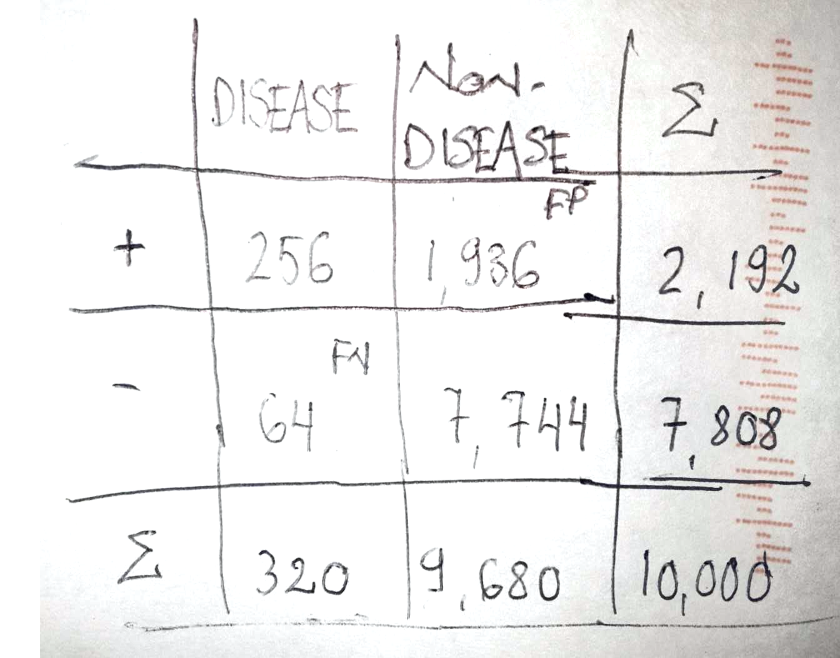 DISEASE NON- Σ
DISEASE
FP
+ 256 1,936 2,192
FN
- 64 7,744 7,808
Σ 320 9,680 10,000